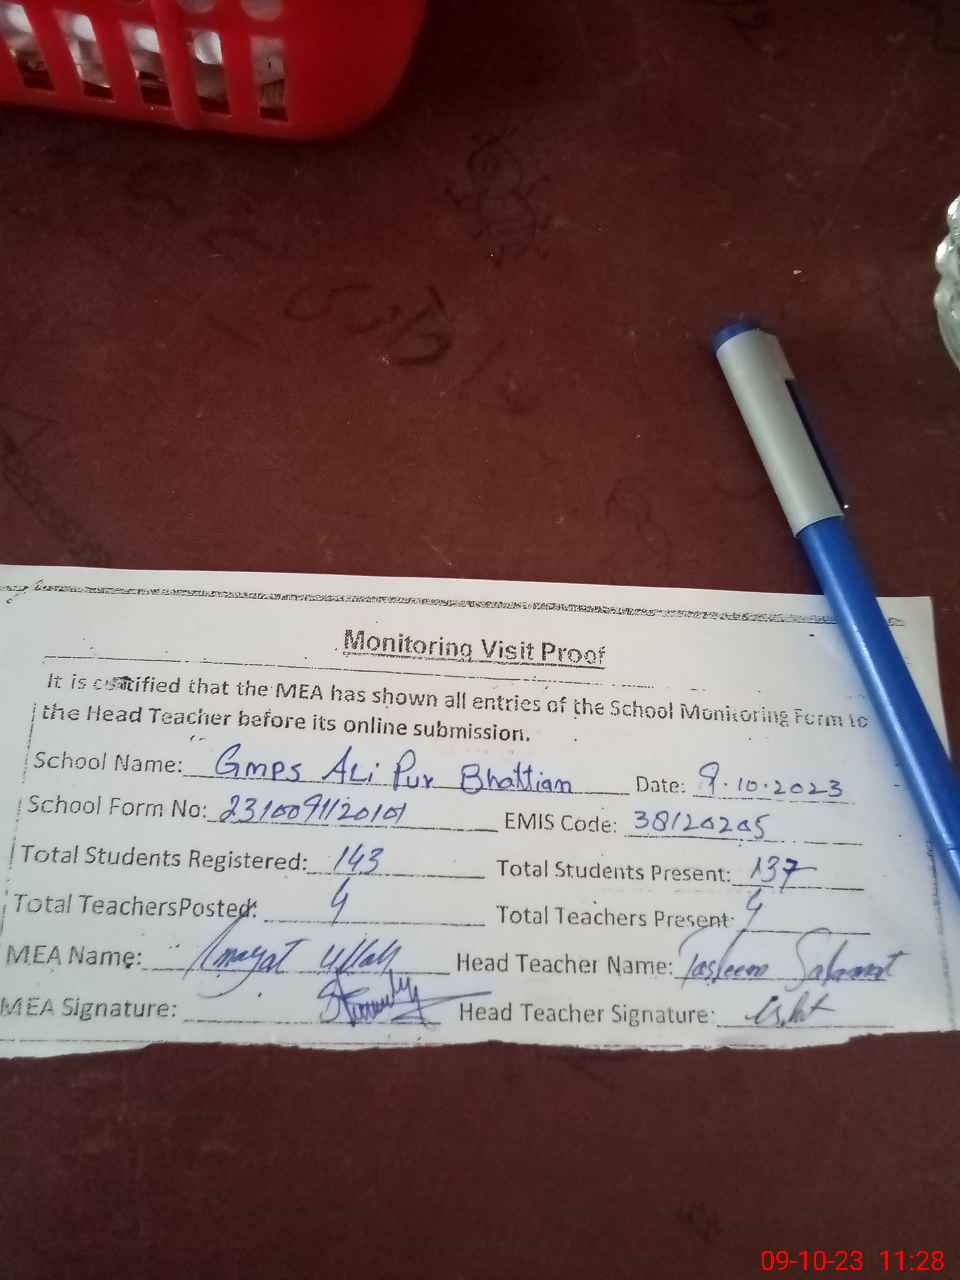 Monitoring Visit Proof
It is certified that the MEA has shown all entries of the School Monitoring Form to
the Head Teacher before its online submission.
School Name: GMPS ALi Pur Bhattian Date: 9.10.2023
School Form No: 2310091120101 EMIS Code: 38120205
Total Students Registered: 143 Total Students Present: 137
Total TeachersPosted: 4 Total Teachers Present: 4
MEA Name: Inayat Ullah Head Teacher Name: Tasleem Salamat
MEA Signature: Head Teacher Signature:
09-10-23 11:28